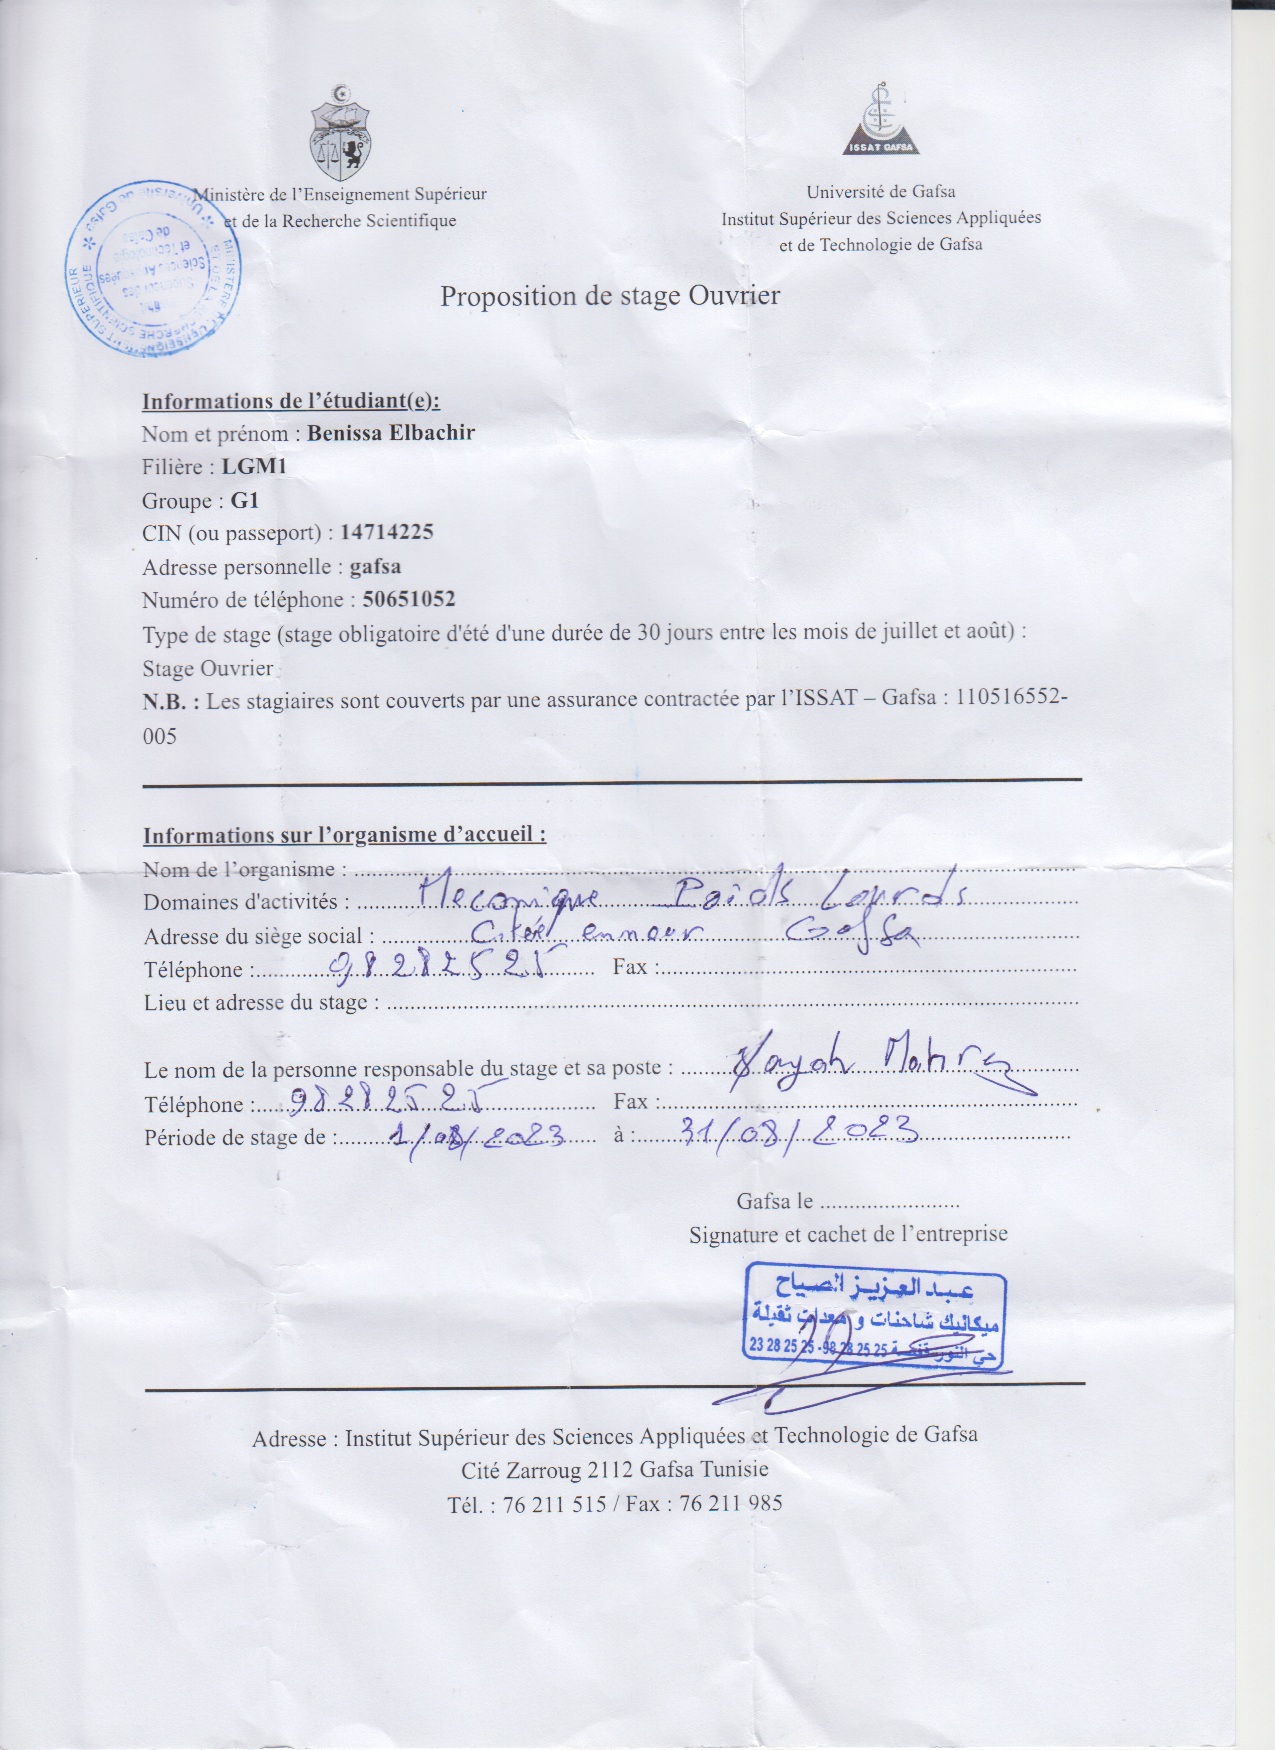 ISSAT GAFSA
Ministère de l’Enseignement Supérieur
et de la Recherche Scientifique
Université de Gafsa
Institut Supérieur des Sciences Appliquées
et de Technologie de Gafsa
Proposition de stage Ouvrier
Informations de l’étudiant(e):
Nom et prénom : Benissa Elbachir
Filière : LGM1
Groupe : G1
CIN (ou passeport) : 14714225
Adresse personnelle : gafsa
Numéro de téléphone : 50651052
Type de stage (stage obligatoire d'été d'une durée de 30 jours entre les mois de juillet et août) :
Stage Ouvrier
N.B. : Les stagiaires sont couverts par une assurance contractée par l’ISSAT – Gafsa : 110516552-
005
Informations sur l’organisme d’accueil :
Nom de l’organisme :
Domaines d'activités : Mecanique Poids Lourds
Adresse du siège social : Citéé ennour Gafsa
Téléphone : 98282525 Fax :
Lieu et adresse du stage :
Le nom de la personne responsable du stage et sa poste : Mahrez
Téléphone : 98282525 Fax :
Période de stage de : 1/08/2023 à : 31/08/2023
Gafsa le
Signature et cachet de l’entreprise
عبد العزيز الصياح
ميكانيك شاحنات و معدات ثقيلة
حي النور قفصة 25 25 28 98 - 25 25 28 23
Adresse : Institut Supérieur des Sciences Appliquées et Technologie de Gafsa
Cité Zarroug 2112 Gafsa Tunisie
Tél. : 76 211 515 / Fax : 76 211 985